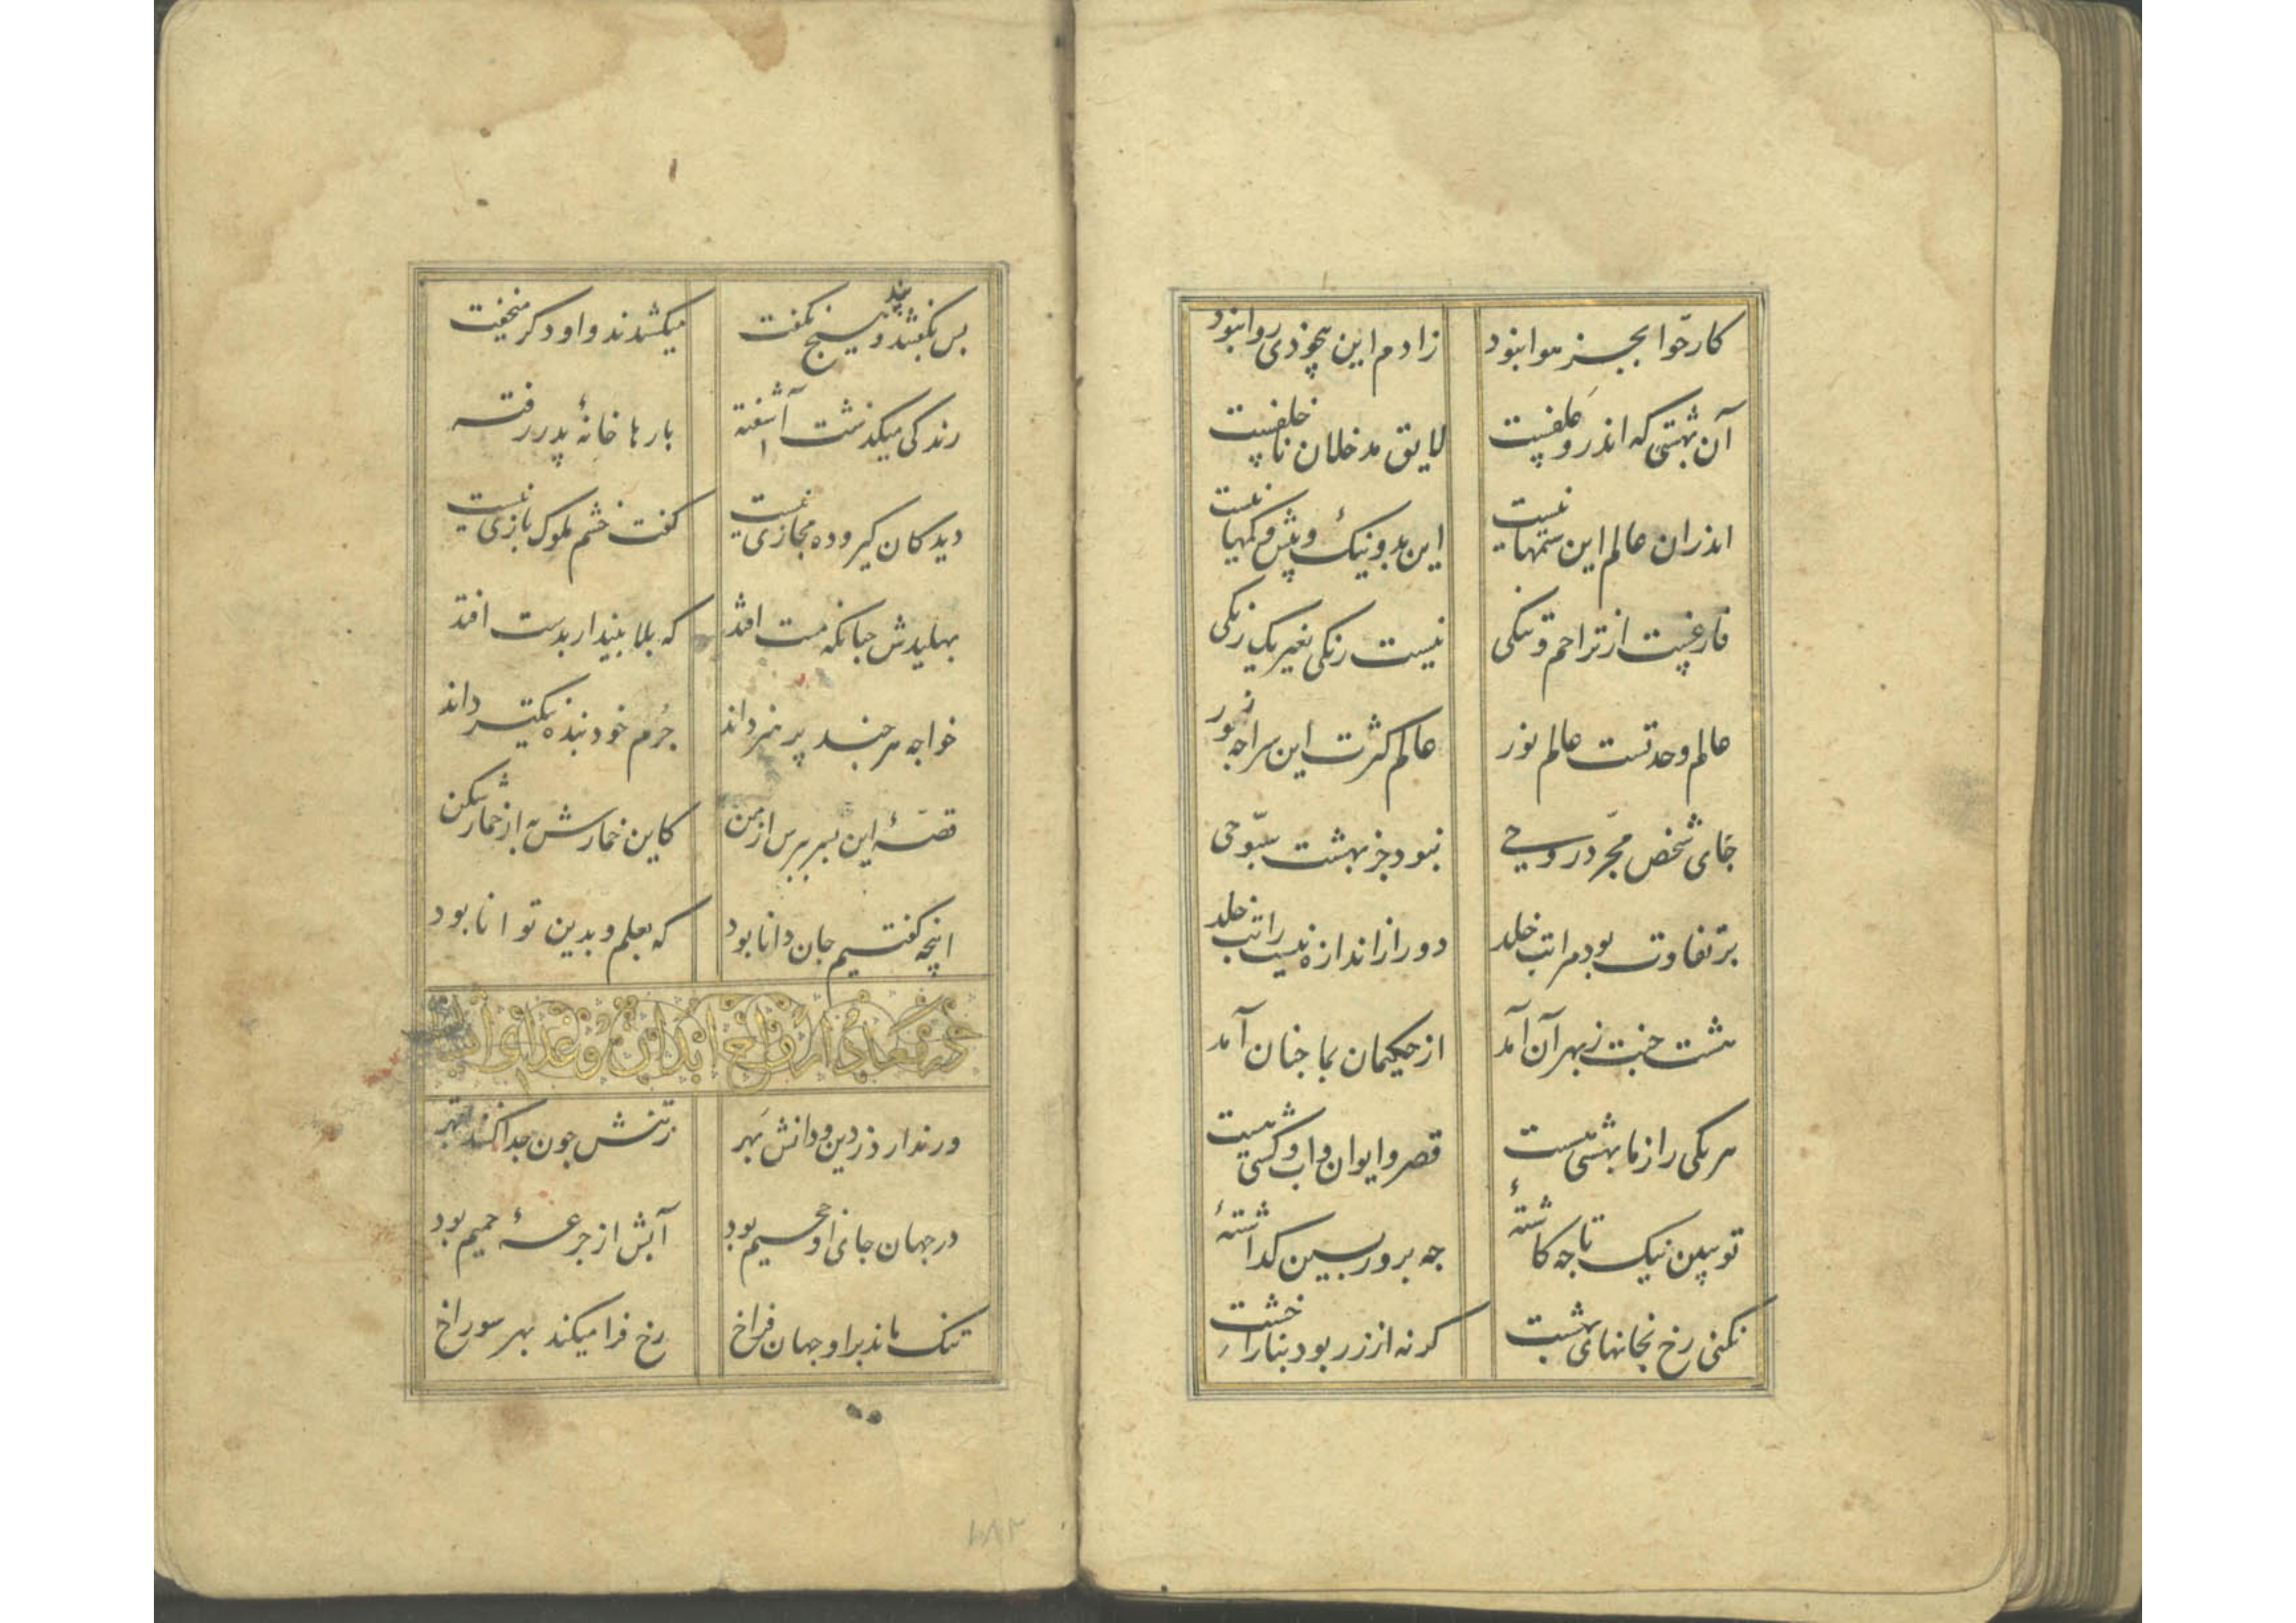 کار حوّا بجز هوا نبود زادم این بیخودی روا نبود
آن بهشتی که اندرو علفیست لایق مدخلان ناخلفیست
اندران عالم این ستمها نیست این بد و نیک و بیش و کمها نیست
فارغیست از تزاحم و تنگی نیست رنکی بغیر یک رنکی
عالم وحدتست عالم نور عالم کثرت این سراجه زور
جای شخص مجرّد روحی نبود جز بهشت سبّوحی
بر تفاوت بود مراتب خلد دور از اندازه نیست راتب خلد
هشت جنت ز بهر آن آمد از حکیمان بما جنان آمد
هر یکی را ز ما بهشتی هست قصر و ایوان و اب و کشتی هست
تو ببین نیک تا جه کاشتهٔ جه برو بر ببین کذاشتهٔ
نکنی رخ بخانهای بهشت کرنه از زر بود بنا را خشت
بس بکفتند و هیچ پند نکفت میکشیدند و او دکر میخفت
رندکی میکذشت آشفته بارها خانهٔ پدر رفته
دید کان کیر و ده مجازی نیست کفت خشم ملوک بازی نیست
بهلیدش جنانکه مست افتد که بلا بیندار بدست افتد
خواجه هر جند پر هنر داند جرم خود بنده نیکتر داند
قصهٔ این بسر بپرس از من کاین خمارش به از خمار شکن
انچه کفتیم جان دانا بود که بعلم و بدین توانا بود
در معاد ارواح ابدان و غذای
ور ندارد ز دین و دانش بهر ز تنش جون جدا کنند بقهر
در جهان جای او جحیم بود آبش از جرعهٔ حمیم بود
تنک ماند برو جهان فراخ رخ فرا میکند بهر سوراخ